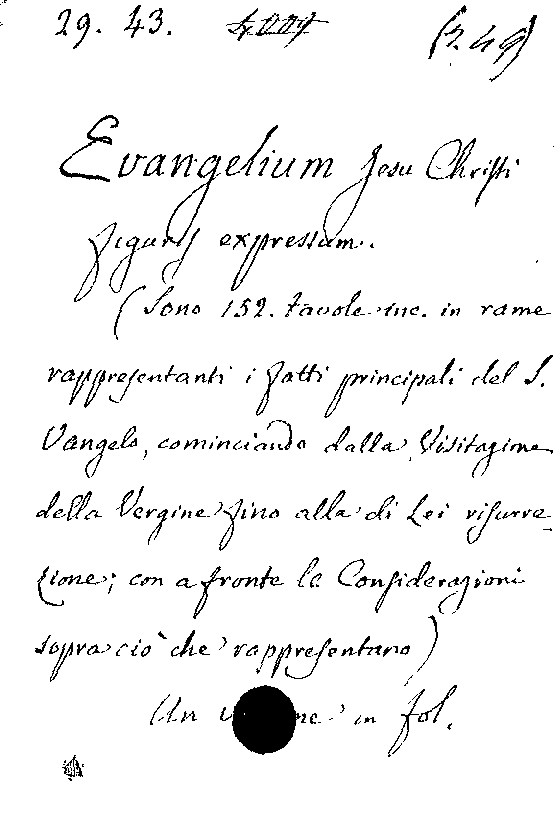 29. 43. (3.49)
Evangelium Jesu Christi
figuris expressum.
(Sono 152. tavole inc. in rame
rappresentanti i fatti principali del S.
Vangelo, cominciando dalla Visitazione
della Vergine fino alla di Lei risurre-
zione; con a fronte le Considerazioni
sopra ciò che rappresentano)
Un in fol.